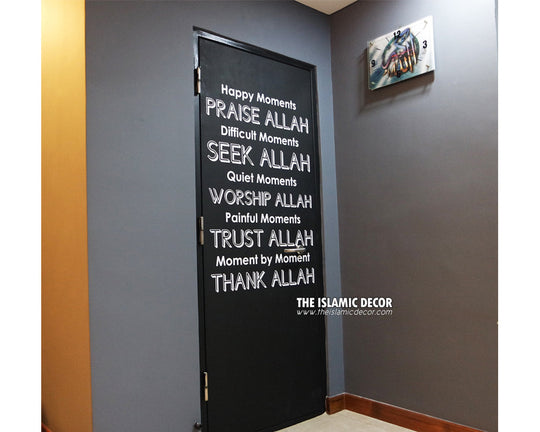 Happy Moments
PRAISE ALLAH
Difficult Moments
SEEK ALLAH
Quiet Moments
WORSHIP ALLAH
Painful Moments
TRUST ALLAH
Moment by Moment
THANK ALLAH
12
3
9
THE ISLAMIC DECOR
www.theislamicdecor.com